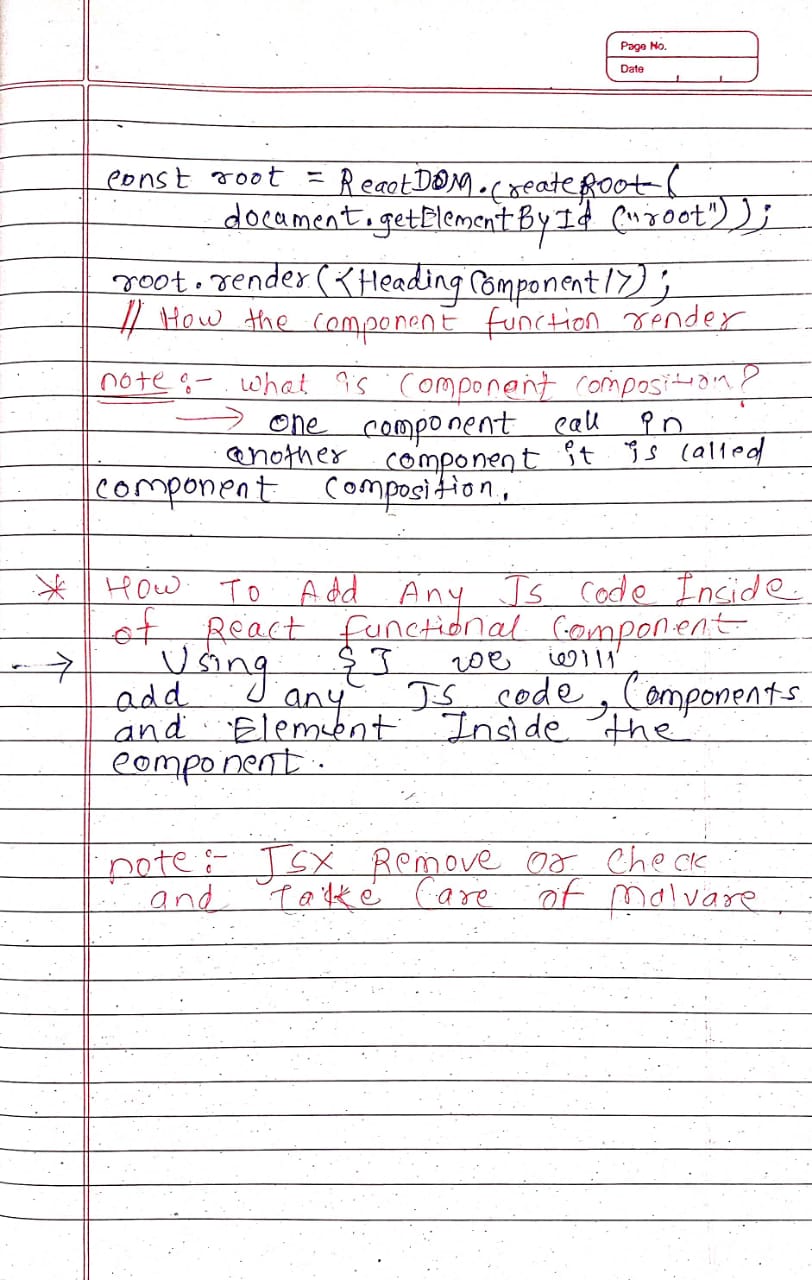 Page No.
Date
const root = ReactDOM.createRoot(
document.getElementById ("root"));
root.render(<HeadingComponent/>);
// How the component function render
note :- what is component composition?
→ one component call in
another component it is called
component composition.
* How To Add Any Js code Inside
of React functional Component
→ Using {} we will
add any JS code, Components
and Element Inside the
component.
note :- Jsx Remove or check
and Take Care of malvare